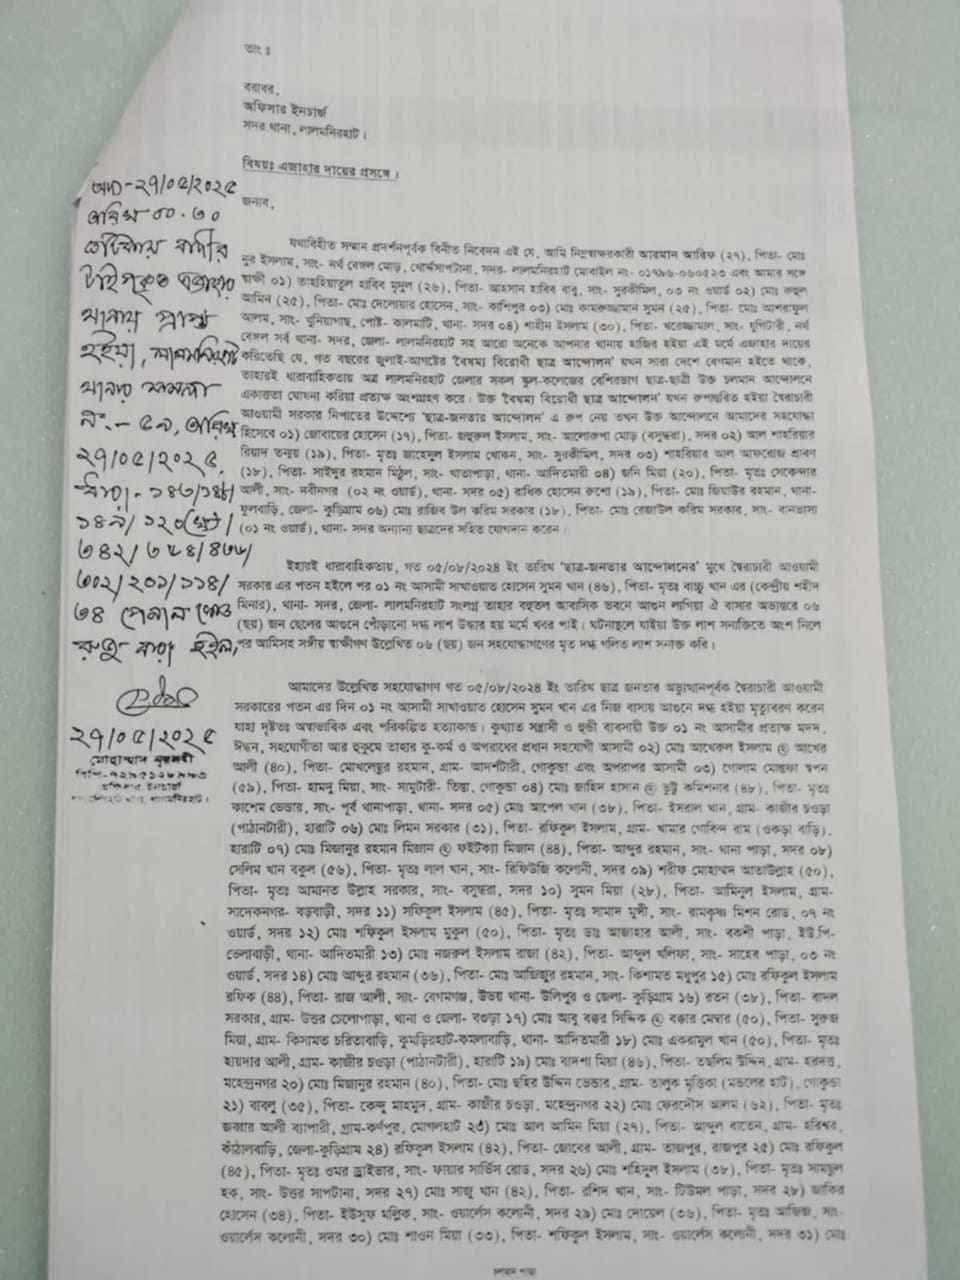 তাং ঃ
বরাবর,
অফিসার ইনচার্জ
সদর থানা, লালমনিরহাট।
বিষয়ঃ এজাহার দায়ের প্রসঙ্গে।
জনাব,
অদ্য-২৭/০৫/২০২৫
তারিখ ০০.৩০
ঘটিকায় বাদীর
টাইপকৃত এজাহার
থানায় প্রাপ্ত
হইয়া, লালমনিরহাট
থানার মামলা
নং-৫৯, তারিখ
২৭/০৫/২০২৫,
ধারা-১৪৩/১৪৪/
৩৪ পেনাল কোড
রুজু করা হইল,
২৭/০৫/২০২৫
মোহাম্মদ নুরনবী
অফিসার ইনচার্জ
যথাবিহীত সম্মান প্রদর্শনপূর্বক বিনীত নিবেদন এই যে, আমি নিম্নস্বাক্ষরকারী আরমান আরিফ (২৭), পিতা- মোঃ
নুর ইসলাম, সাং- নর্থ বেঙ্গল মোড়, খোর্দ্দসাপটানা, সদর- লালমনিরহাট মোবাইল নং- ০১৭৯৬-০৬০৫২৩ এবং আমার সঙ্গে
স্বাক্ষী ০১) তাহহিয়াতুল হাবিব মৃদুল (২৬), পিতা- আহসান হাবিব বাবু, সাং- সুরকীমিল, ০৩ নং ওয়ার্ড ০২) মোঃ রুহুল
আমিন (২৫), পিতা- মোঃ দেলোয়ার হোসেন, সাং- কাশিপুর ০৩) মোঃ কামরুজ্জামান সুমন (২৫), পিতা- মোঃ আশরাফুল
আলম, সাং- খুনিয়াগাছ, পোষ্ট- কালমাটি, থানা- সদর ০৪) শাহীন ইসলাম (৩০), পিতা- খরেজ্জামাল, সাং- যুগিটারী, নর্থ
বেঙ্গল সর্ব থানা- সদর, জেলা- লালমনিরহাট সহ আরো অনেকে আপনার থানায় হাজির হইয়া এই মর্মে এজাহার দায়ের
করিতেছি যে, গত বছরের জুলাই-আগষ্টের 'বৈষম্য বিরোধী ছাত্র আন্দোলন' যখন সারা দেশে বেগমান হইতে থাকে,
তাহারই ধারাবাহিকতায় অত্র লালমনিরহাট জেলার সকল স্কুল-কলেজের বেশিরভাগ ছাত্র-ছাত্রী উক্ত চলমান আন্দোলনে
একাত্ততা ঘোষনা করিয়া প্রত্যক্ষ অংশগ্রহণ করে। উক্ত 'বৈষম্য বিরোধী ছাত্র আন্দোলন' যখন রুপান্তরিত হইয়া স্বৈরাচারী
আওয়ামী সরকার নিপাতের উদ্দেশ্যে 'ছাত্র-জনতার আন্দোলন' এ রুপ নেয় তখন উক্ত আন্দোলনে আমাদের সহযোদ্ধা
হিসেবে ০১) জোবায়ের হোসেন (১৭), পিতা- জহুরুল ইসলাম, সাং- আলোরুপা মোড় (বসুন্ধরা), সদর ০২) আল শাহরিয়ার
রিয়াদ তন্ময় (১৯), পিতা- মৃতঃ জাহেদুল ইসলাম খোকন, সাং- সুরকীমিল, সদর ০৩) শাহরিয়ার আল আফরোজ শ্রাবণ
(১৮), পিতা- সাইদুর রহমান মিঠুল, সাং- খাতাপাড়া, থানা- আদিতমারী ০৪) জনি মিয়া (২০), পিতা- মৃতঃ সেকেন্দার
আলী, সাং- নবীনগর (০২ নং ওয়ার্ড), থানা- সদর ০৫) রাধিক হোসেন রুশো (১৯), পিতা- মোঃ জিয়াউর রহমান, থানা-
ফুলবাড়ি, জেলা- কুড়িগ্রাম ০৬) মোঃ রাজিব উল করিম সরকার (১৮), পিতা- মোঃ রেজাউল করিম সরকার, সাং- বানভাসা
(০১ নং ওয়ার্ড), থানা- সদর অন্যান্য ছাত্রদের সহিত যোগদান করেন।
ইহারই ধারাবাহিকতায়, গত ০৫/০৮/২০২৪ ইং তারিখ 'ছাত্র-জনতার আন্দোলনের' মুখে স্বৈরাচারী আওয়ামী
সরকার এর পতন হইলে পর ০১ নং আসামী সাখাওয়াত হোসেন সুমন খান (৪৬), পিতা- মৃতঃ বাচ্চু খান এর (কেন্দ্রীয় শহীদ
মিনার), থানা- সদর, জেলা- লালমনিরহাট সংলগ্ন তাহার বহুতল আবাসিক ভবনে আগুন লাগিয়া ঐ বাসার অভ্যন্তরে ০৬
(ছয়) জন ছেলের আগুনে পোঁড়ানো দগ্ধ লাশ উদ্ধার হয় মর্মে খবর পাই। ঘটনাস্থলে যাইয়া উক্ত লাশ সনাক্তিতে অংশ নিলে
পর আমিসহ সঙ্গীয় স্বাক্ষীগণ উল্লেখিত ০৬ (ছয়) জন সহযোদ্ধাগণের মৃত দগ্ধ গলিত লাশ সনাক্ত করি।
আমাদের উল্লেখিত সহযোদ্ধাগণ গত ০৫/০৮/২০২৪ ইং তারিখ ছাত্র জনতার অভ্যুত্থানপূর্বক স্বৈরাচারী আওয়ামী
সরকারের পতন এর দিন ০১ নং আসামী সাখাওয়াত হোসেন সুমন খান এর নিজ বাসায় আগুনে দগ্ধ হইয়া মৃত্যুবরণ করেন
যাহা দৃষ্টতঃ অস্বাভাবিক এবং পরিকল্পিত হত্যাকান্ড। কুখ্যাত সন্ত্রাসী ও হুন্ডী ব্যবসায়ী উক্ত ০১ নং আসামীর প্রত্যক্ষ মদদ,
ঈন্ধন, সহযোগীতা আর হুকুমে তাহার কু-কর্ম ও অপরাধের প্রধান সহযোগী আসামী ০২) মোঃ আখেরুল ইসলাম @ আখের
আলী (৪০), পিতা- মোখলেছুর রহমান, গ্রাম- আদর্শটারী, গোকুন্ডা এবং অপরাপর আসামী ০৩) গোলাম মোস্তফা স্বপন
(৫৯), পিতা- হামদু মিয়া, সাং- সামুটারী- তিস্তা, গোকুন্ডা ০৪) মোঃ জাহিদ হাসান @ ভুট্টু কমিশনার (৪৮), পিতা- মৃতঃ
কাশেম ভেন্ডার, সাং- পূর্ব থানাপাড়া, থানা- সদর ০৫) মোঃ আপেল খান (৩৮), পিতা- ইসরাল খান, গ্রাম- কাজীর চওড়া
(পাঠানটারী), হারাটি ০৬) মোঃ লিমন সরকার (৩১), পিতা- রফিকুল ইসলাম, গ্রাম- খামার গোবিন্দ রাম (ওকড়া বাড়ি),
হারাটি ০৭) মোঃ মিজানুর রহমান মিজান @ ফইটক্যা মিজান (৪৪), পিতা- আব্দুর রহমান, সাং- থানা পাড়া, সদর ০৮)
সেলিম খান বকুল (৫৬), পিতা- মৃতঃ লাল খান, সাং- রিফিউজি কলোনী, সদর ০৯) শরীফ মোহাম্মদ আতাউল্লাহ (৫০),
পিতা- মৃতঃ আমানত উল্লাহ সরকার, সাং- বসুন্ধরা, সদর ১০) সুমন মিয়া (২৮), পিতা- আমিনুল ইসলাম, গ্রাম-
সাদেকনগর- বড়বাড়ী, সদর ১১) সফিকুল ইসলাম (৪৫), পিতা- মৃতঃ সামাদ মুন্সী, সাং- রামকৃষ্ণ মিশন রোড, ০৭ নং
ওয়ার্ড, সদর ১২) মোঃ শফিকুল ইসলাম মুকুল (৫০), পিতা- মৃতঃ ডাঃ আজাহার আলী, সাং- বকশী পাড়া, ইউ.পি-
ভেলাবাড়ী, থানা- আদিতমারী ১৩) মোঃ নজরুল ইসলাম রাজা (৪২), পিতা- আব্দুল খলিফা, সাং- সাহেব পাড়া, ০৩ নং
ওয়ার্ড, সদর ১৪) মোঃ আব্দুর রহমান (৩৬), পিতা- মোঃ আজিজুর রহমান, সাং- কিশামত মধুপুর ১৫) মোঃ রফিকুল ইসলাম
রফিক (৪৪), পিতা- রাজ আলী, সাং- বেগমগঞ্জ, উভয় থানা- উলিপুর ও জেলা- কুড়িগ্রাম ১৬) রতন (৩৮), পিতা- বাদল
সরকার, গ্রাম- উত্তর চেলোপাড়া, থানা ও জেলা- বগুড়া ১৭) মোঃ আবু বক্কর সিদ্দিক @ বক্কার মেম্বার (৫০), পিতা- সুরুজ
মিয়া, গ্রাম- কিসামত চরিতাবাড়ি, কুমড়িরহাট-কমলাবাড়ি, থানা- আদিতমারী ১৮) মোঃ একরামুল খান (৫০), পিতা- মৃতঃ
হায়দার আলী, গ্রাম- কাজীর চওড়া (পাঠানটারী), হারাটি ১৯) মোঃ বাদশা মিয়া (৪৬), পিতা- তছলিম উদ্দিন, গ্রাম- হরদত্ত,
মহেন্দ্রনগর ২০) মোঃ মিজানুর রহমান (৪০), পিতা- মোঃ ছহির উদ্দিন ভেন্ডার, গ্রাম- তালুক মৃত্তিকা (মন্ডলের হাট), গোকুন্ডা
২১) বাবলু (৩৫), পিতা- কেন্দু মাহমুদ, গ্রাম- কাজীর চওড়া, মহেন্দ্রনগর ২২) মোঃ ফেরদৌস আলম (৬২), পিতা- মৃতঃ
জব্বার আলী ব্যাপারী, গ্রাম-কর্ণপুর, মোগলহাট ২৩) মোঃ আল আমিন মিয়া (২৭), পিতা- আব্দুল বাতেন, গ্রাম- হরিশ্বর,
কাঁঠালবাড়ি, জেলা-কুড়িগ্রাম ২৪) রফিকুল ইসলাম (৪২), পিতা- জোবের আলী, গ্রাম- তাজপুর, রাজপুর ২৫) মোঃ রফিকুল
(৪৫), পিতা- মৃতঃ ওমর ড্রাইভার, সাং- ফায়ার সার্ভিস রোড, সদর ২৬) মোঃ শহিদুল ইসলাম (৩৮), পিতা- মৃতঃ সামছুল
হক, সাং- উত্তর সাপটানা, সদর ২৭) মোঃ সাজু খান (৪২), পিতা- রশিদ খান, সাং- টিউমল পাড়া, সদর ২৮) জাকির
হোসেন (৩৪), পিতা- ইউসুফ মল্লিক, সাং- ওয়ার্লেস কলোনী, সদর ২৯) মোঃ দোয়েল (৩৬), পিতা- মৃতঃ আজিজ, সাং-
ওয়ার্লেস কলোনী, সদর ৩০) মোঃ শাওন মিয়া (৩৩), পিতা- শফিকুল ইসলাম, সাং- ওয়ার্লেস কলোনী, সদর ৩১) মোঃ
চলমান পাতা